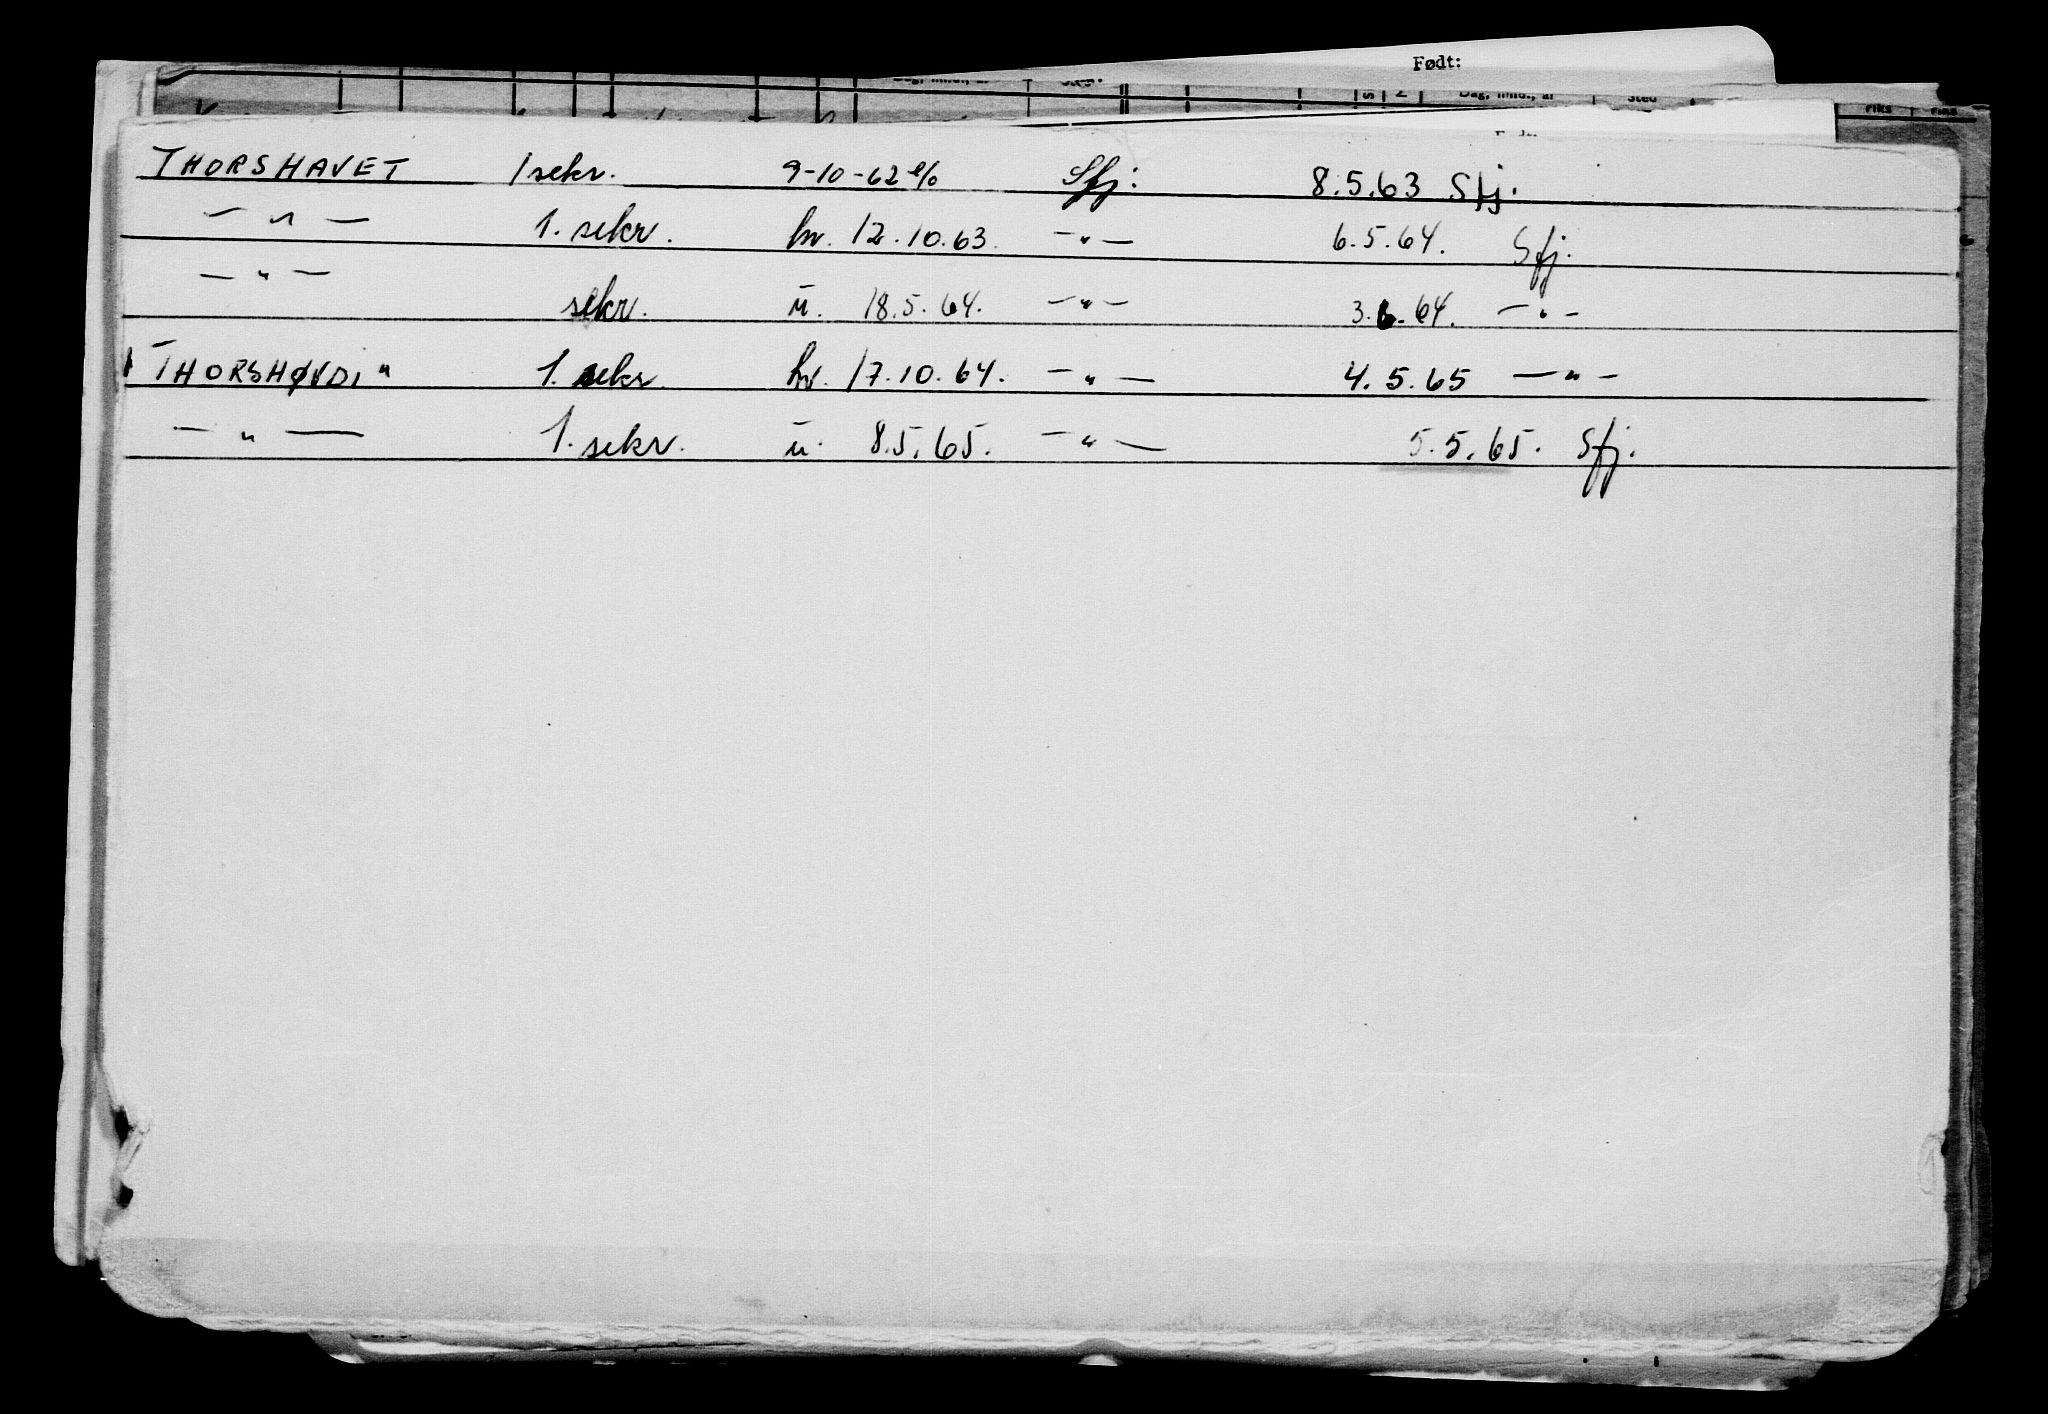 Født:
Dag, mnd., år Sted
THORSHAVET 1 sekr. 9-10-62 e/o Sfj. 8.5.63 Sfj.
— " — 1. sekr. hv. 12.10.63. — " — 6.5.64. Sfj.
— " — sekr. u. 18.5.64. — " — 3.6.64. — " —
"THORSHØVDI" 1. sekr. hv. 17.10.64. — " — 4.5.65 — " —
— " — 1. sekr. u. 8.5.65. — " — 5.5.65. Sfj.